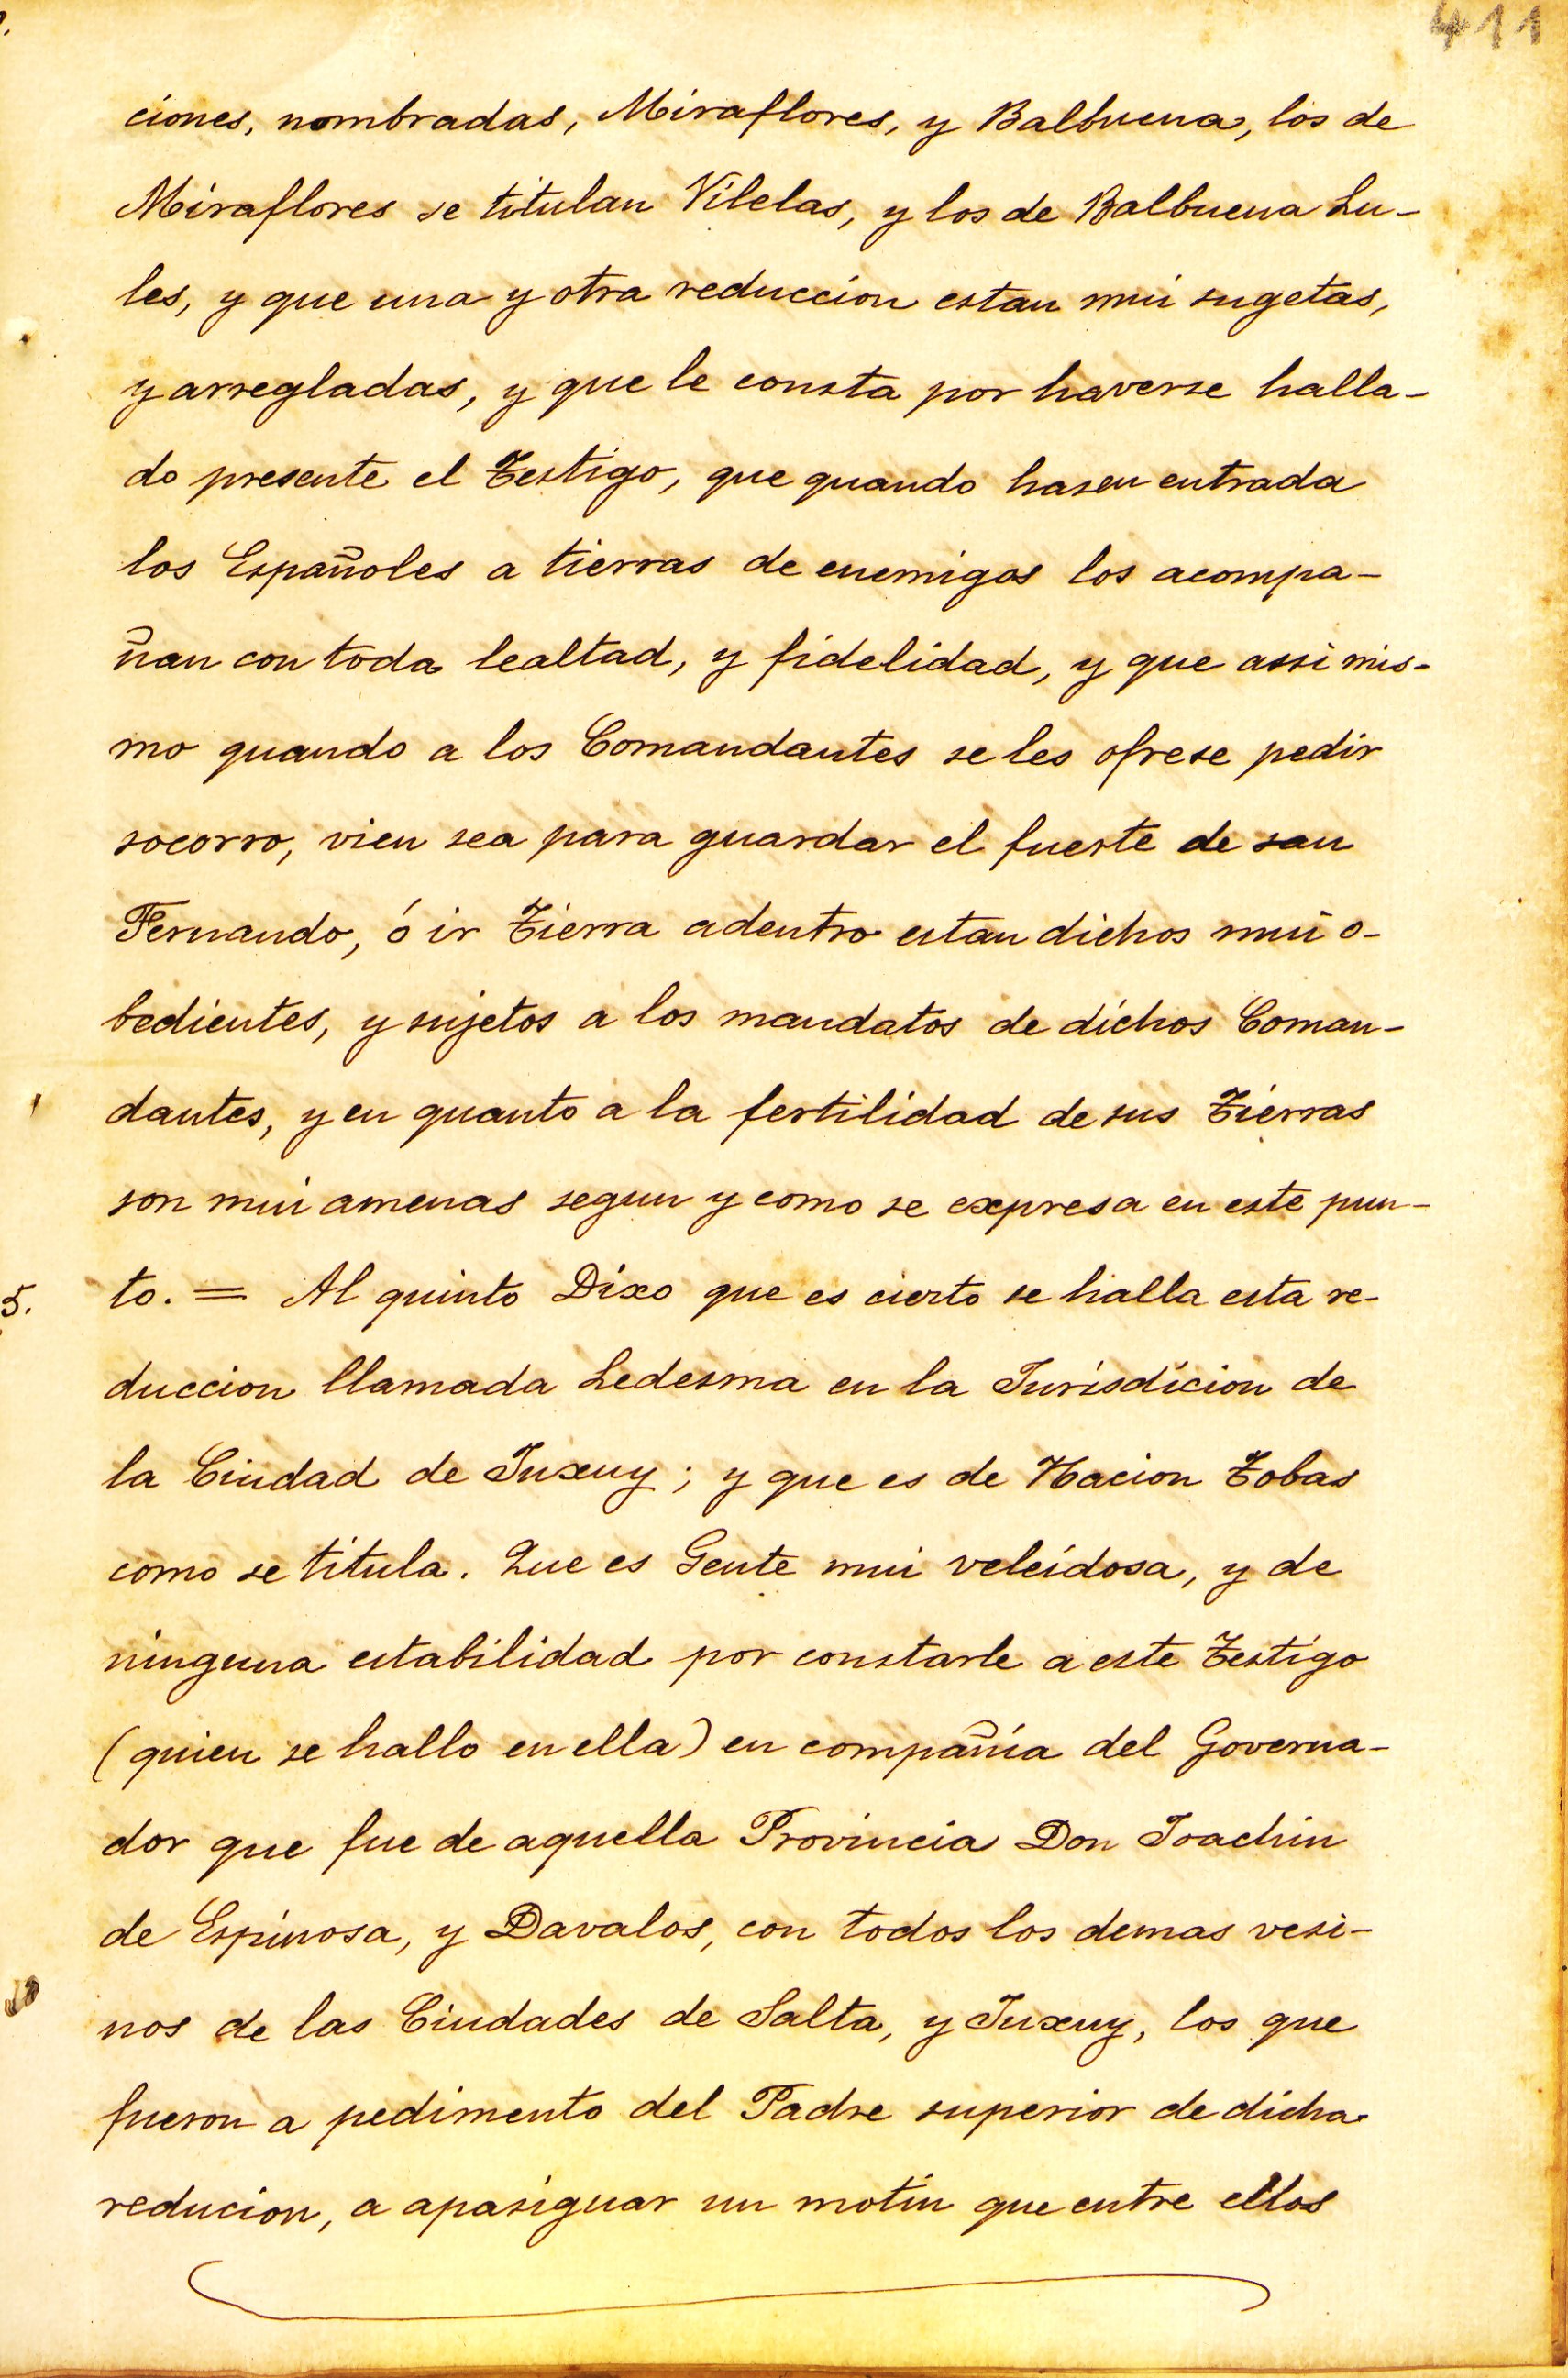 411
ciones, nombradas, Miraflores, y Balbuena, los de
Miraflores se titulan Vilelas, y los de Balbuena Lu-
les, y que una y otra reduccion estan mui sugetas,
y arregladas, y que le consta por haverse halla-
do presente el Testigo, que quando hasen entrada
los Españoles a tierras de enemigos los acompa-
ñan con toda lealtad, y fidelidad, y que assi mis-
mo quando a los Comandantes se les ofrese pedir
socorro, vien sea para guardar el fuerte de san
Fernando, ó ir Tierra adentro estan dichos mui o-
bedientes, y sujetos a los mandatos de dichos Coman-
dantes, y en quanto a la fertilidad de sus Tierras
son mui amenas segun y como se expresa en este pun-
5. to. = Al quinto Dixo que es cierto se halla esta re-
duccion llamada Ledesma en la Jurisdicion de
la Ciudad de Juxuy; y que es de Nacion Tobas
como se titula. Que es Gente mui veleidosa, y de
ninguna estabilidad por constarle a este Testigo
(quien se hallo en ella) en compañia del Governa-
dor que fue de aquella Provincia Don Joachin
de Espinosa, y Davalos, con todos los demas vesi-
nos de las Ciudades de Salta, y Juxuy, los que
fueron a pedimento del Padre superior de dicha
reducion, a apasiguar un motin que entre ellos